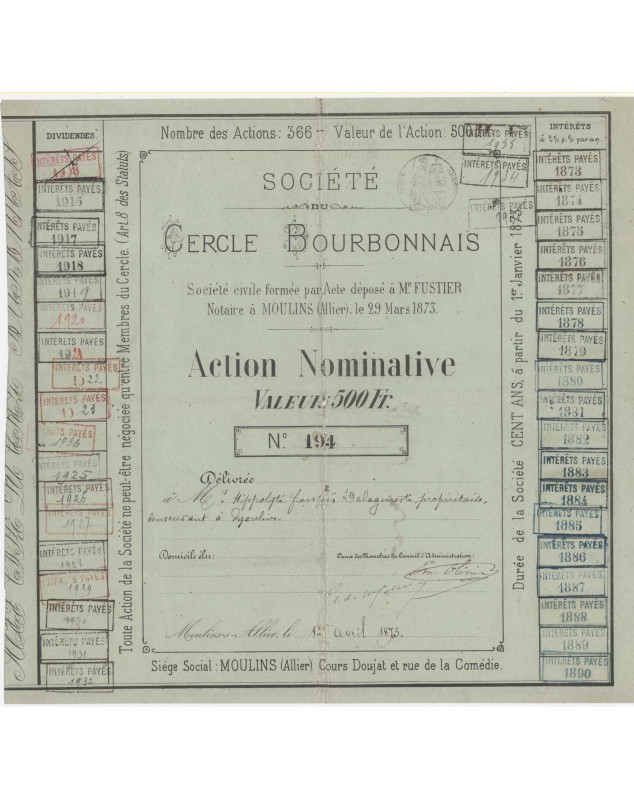 Nombre des Actions: 366 — Valeur de l'Action: 500
SOCIÉTÉ
DU
CERCLE BOURBONNAIS
Société civile formée par Acte déposé à Me FUSTIER
Notaire à MOULINS (Allier), le 29 Mars 1873.
Action Nominative
VALEUR: 500 Fr.
No 194
Délivrée
à Mr Hippolyte propriétaire,
demeurant à Moulins.
Domicile élu:
Deux des Membres du Conseil d'Administration:
Moulins-Allier, le 1er avril 1873.
Siége Social: MOULINS (Allier) Cours Doujat et rue de la Comédie.
Toute Action de la Société ne peut-être négociée qu'entre Membres du Cercle. (Art. 8 des Statuts)
Durée de la Société CENT ANS, à partir du 1er Janvier 1873.
DIVIDENDES
INTÉRÊTS PAYÉS
INTÉRÊTS PAYÉS
1916
INTÉRÊTS PAYÉS
1917
INTÉRÊTS PAYÉS
1918
INTÉRÊTS PAYÉS
1919
INTÉRÊTS PAYÉS
1920
INTÉRÊTS PAYÉS
1921
INTÉRÊTS PAYÉS
1922
INTÉRÊTS PAYÉS
1923
INTÉRÊTS PAYÉS
1924
INTÉRÊTS PAYÉS
1925
INTÉRÊTS PAYÉS
1926
INTÉRÊTS PAYÉS
1927
INTÉRÊTS PAYÉS
1928
INTÉRÊTS PAYÉS
1929
INTÉRÊTS PAYÉS
1930
INTÉRÊTS PAYÉS
1931
INTÉRÊTS PAYÉS
1932
INTÉRÊTS PAYÉS
1935
INTÉRÊTS PAYÉS
1934
INTÉRÊTS PAYÉS
INTÉRÊTS
INTÉRÊTS PAYÉS
1873
INTÉRÊTS PAYÉS
1874
INTÉRÊTS PAYÉS
1875
INTÉRÊTS PAYÉS
1876
INTÉRÊTS PAYÉS
1877
INTÉRÊTS PAYÉS
1878
INTÉRÊTS PAYÉS
1879
INTÉRÊTS PAYÉS
1880
INTÉRÊTS PAYÉS
1881
INTÉRÊTS PAYÉS
1882
INTÉRÊTS PAYÉS
1883
INTÉRÊTS PAYÉS
1884
INTÉRÊTS PAYÉS
1885
INTÉRÊTS PAYÉS
1886
INTÉRÊTS PAYÉS
1887
INTÉRÊTS PAYÉS
1888
INTÉRÊTS PAYÉS
1889
INTÉRÊTS PAYÉS
1890